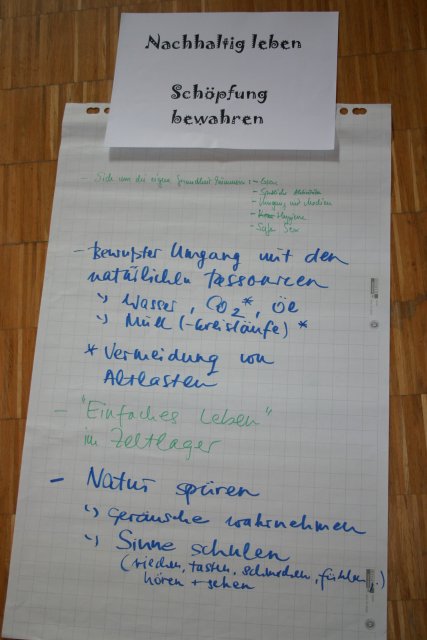 Nachhaltig leben
Schöpfung
bewahren
- Sich um die eigene Gesundheit kümmern: - Essen
- Sportliche Aktivitäten
- Umgang mit Medien
- Hygiene
- Safer Sex
- Bewußter Umgang mit den
natürlichen Ressourcen
↳ Wasser, CO2*, Öl
↳ Müll (-kreisläufe) *
* Vermeidung von
Altlasten
- "Einfaches Leben"
im Zeltlager
- Natur spüren
↳ Geräusche wahrnehmen
↳ Sinne schulen
(riechen, tasten, schmecken, fühlen,
hören + sehen)